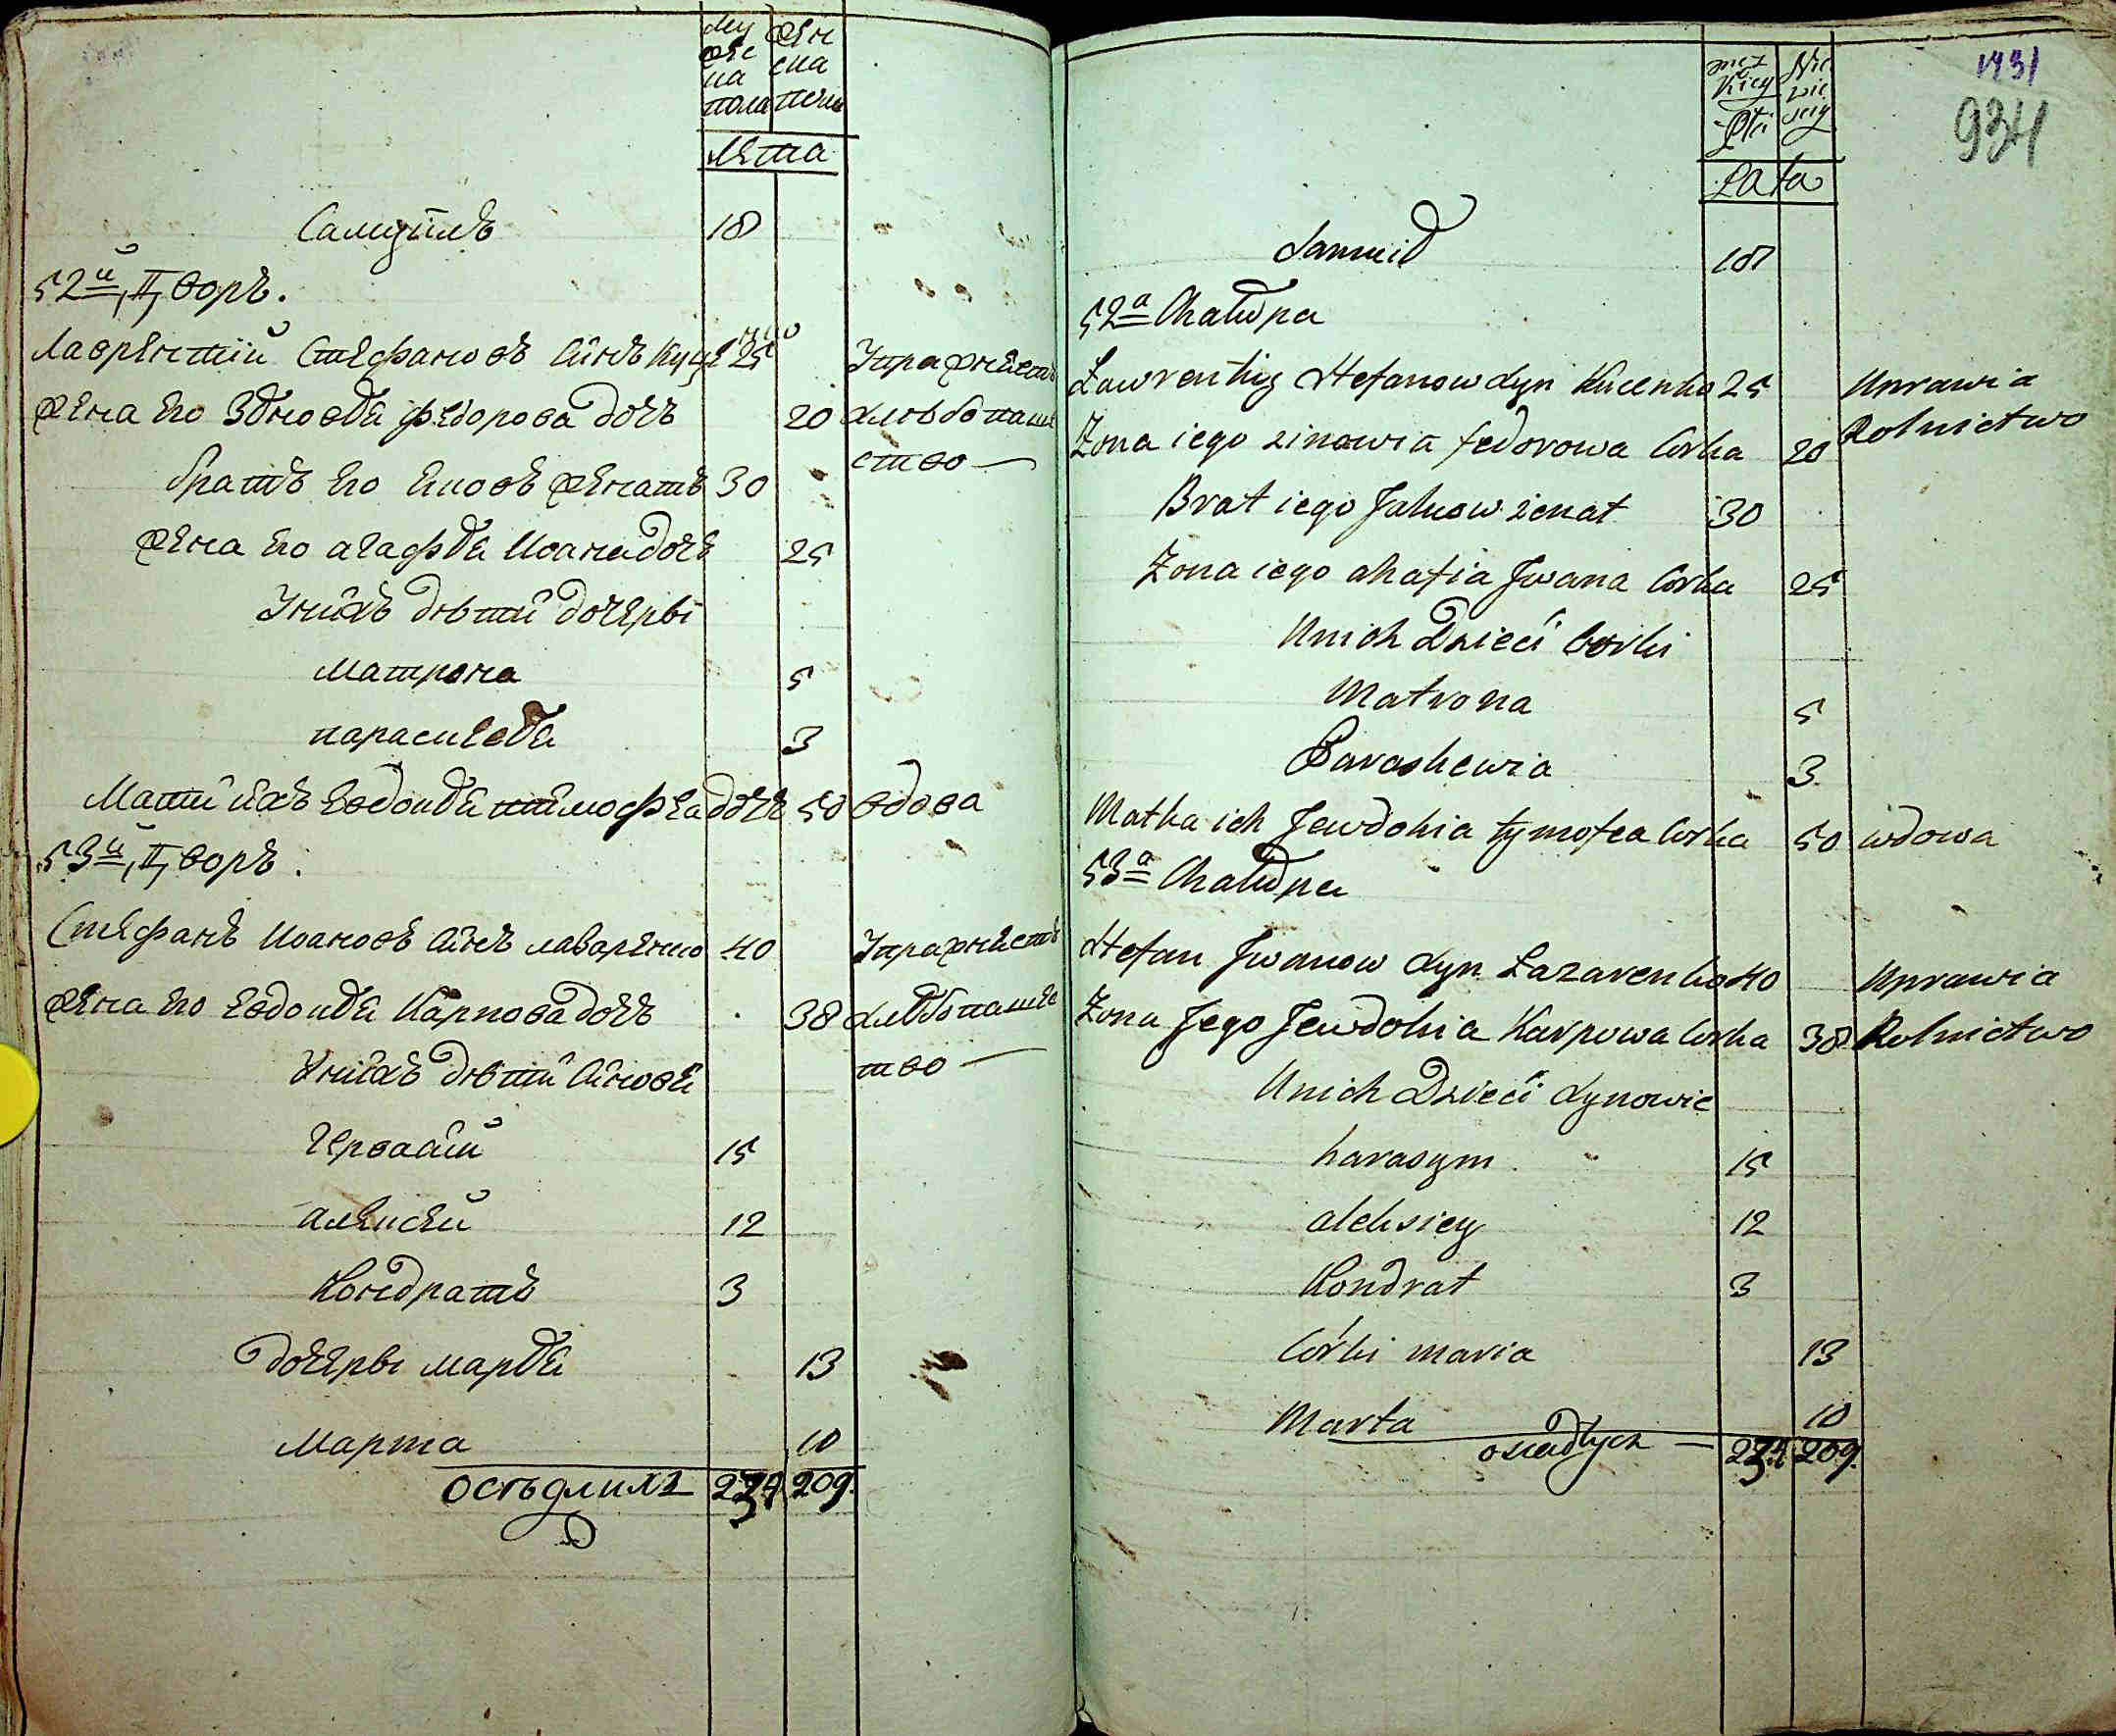 му жес ка пола
жен ска полу
Лета
Самуйлъ 18
52й Дворъ.
Лаврентій Стефановъ сынъ Куценко 25 Упражняетъ
жена его Зѣновья Федорова дочъ 20 хлѣбопаше
ство
братъ его Яковъ женатъ 30
жена его Агафья Ивана дочъ 25
Уныхъ дѣти дочеры
Матрона 5
Параскевья 3
Мати ихъ Евдокья Тимофеа дочъ 50 вдова
53й Дворъ.
Стефанъ Ивановъ сынъ Лазаренко 40 Упражняетъ
жена его Евдокья Карпова дочъ 38 хлѣбопаше
тво
Уныхъ дѣти сынови
Гервасій 15
Алексей 12
Кондратъ 3
дочеры Марья 13
Марта 10
осѣдлихъ 234 209.
1431
934
męz kiey płci
Nie wie sciey
Lata
Samuil 18
52a Chałupa
Ławrentiy Stefanow syn Kucenko 25 Uprawia
Zona iego zinowia fedorowa Corka 20 Rolnictwo
Brat iego Jakow zenat 30
Zona iego ahafia Jwana Corka 25
Unich Dzieci Corki
Matrona 5
Paraskewia 3
Matka ich Jewdokia tymofea Corka 50 wdowa
53a Chałupa
Stefan Jwanow syn Lazarenko 40 Uprawia
Zona Jego Jewdokia Karpowa Corka 38 Rolnictwo
Unich Dzieci synowie
harasym 15
aleksiey 12
Kondrat 3
Córki maria 13
Marta 10
osiadłych — 234 209.